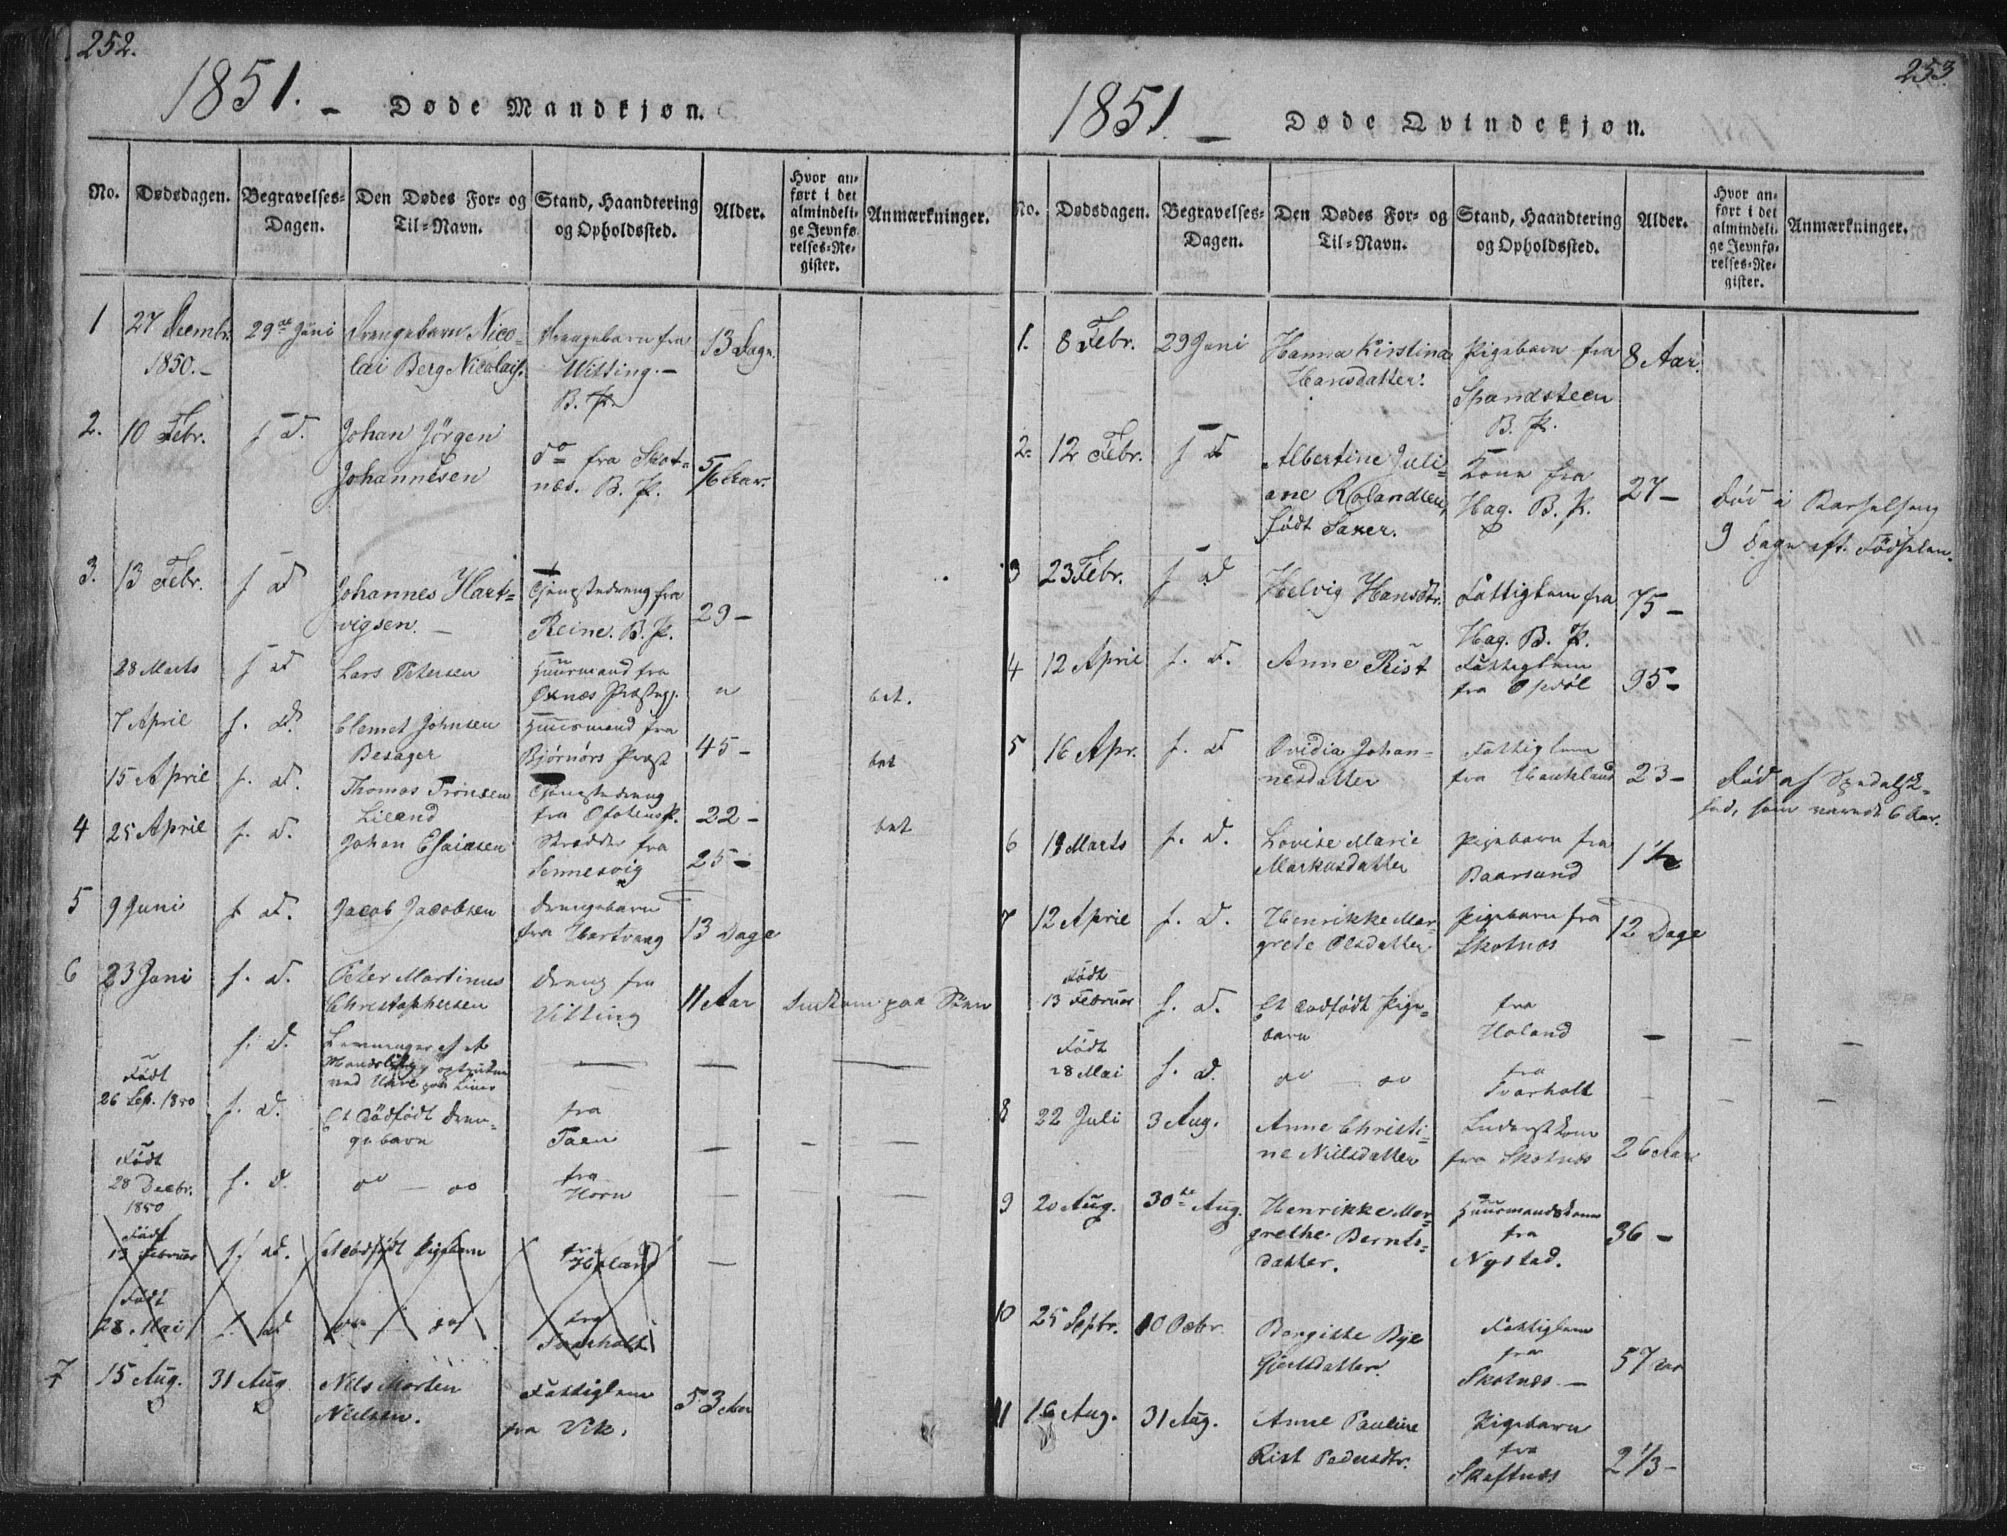 252.
1851. – Døde Mandkjøn.
No. Dødsdagen. Begravelses-Dagen. Den Dødes For- og Til-Navn. Stand, Haandtering og Opholdssted. Alder. Hvor anført i det almindelige Jevnførelses-Register. Anmærkninger.
1 27 Decembr. 1850.– 29de Juni Drengebarn Nicolai Berg Nicolais. Drengebarn fra Witting.– B. P. 13 Dage
2. 10 Febr. s. d. Johan Jörgen Johannesen do fra Skotnæs. B. P. 5/6 Aar.
3. 13 Febr. s. d. Johannes Hartvigsen. – Tjenestedreng fra Reine. B. P. 29 –
28 Marts s. d. Lars Petersen Huusmand fra Øxnæs Præstegj. " bet.
7 April s. d. Clemet Johnsen Besager Huusmand fra Bjørnørs Præst 45 – bet
15 April s. d. Thomas Tronsen Lieand Tjenestedreng fra Ofotens P. 22 – bet
4 25 April s. d. Johan Esaiasen Skrædder fra Sennesvig 25 –
5 9 Juni s. d. Jacob Jacobsen Drengebarn fra Hartvaag 13 Dage
6 23 Juni s. d. Peter Martinus Christophersen Dreng fra Vitting 11 Aar Omkom paa Søen
s. d. Levninger af et Mandslig
Født 26 Sep. 1850 s. d. Et dødfødt Drengebarn fra Taen –
Født 28 Decbr. 1850 s. d. do – do fra Horn –
Født 13 Februar s. d. Et dødfødt Pigebarn fra Holand –
Født 28. Mai s. d. do do fra Tvarholt
7 15 Aug. 31 Aug. Nils Morten Nielsen. Fattiglem fra Vik. 53 Aar
253
1851. – Døde Qvindekjøn.
No. Dødsdagen. Begravelses-Dagen. Den Dødes For- og Til-Navn. Stand, Haandtering og Opholdssted. Alder. Hvor anført i det almindelige Jevnførelses-Register. Anmærkninger.
1. 8 Febr. 29 Juni Hanna Kirstina Hansdatter. Pigebarn fra Spandsteen B. P. 8 Aar.
2. 12 Febr. s. d. Albertine Juliane Rolandsen, født Saxer. Kone fra Hag. B. P. 27 – Død i Barselseng 9 Dage eft. Födselen.
3 23 Febr. s. d. Helvig Hansdtr. Fattiglem fra Hag. B. P. 75 –
4 12 April s. d. Anne Rist Fattiglem fra Opdöl 95 –
5 16 Apr. s. d. Ovidia Johannesdatter Fattiglem fra Haukland 23 – Död af Spedalsked, som varede 6 Aar.
6 19 Marts s. d. Lovise Marie Markusdatter Pigebarn fra Baarsund 1 1/2
7 12 April s. d. Henrikke Margrete Olsdatter Pigebarn fra Skotnæs 12 Dage
Født 13 Februar s. d. Et dødfödt Pigebarn fra Holand –
Født 28 Mai s. d. do – do fra Tvarholt –
8 22 Juli 3 Aug. Anne Christine Nielsdatter Inderstkone fra Skotnæs 26 Aar
9 20 Aug. 30te Aug. Henrikke Margrethe Berntsdatter. Huusmandskone fra Nystad. 36 –
10 25 Septbr. 10 Octbr. Bergitte Bye Gjertsdatter. Fattiglem fra Skotnæs. – 57 Aar
11 16 Aug. 31 Aug. Anne Pauline Rist Pedersdtr. Pigebarn fra Skaftnæs 2 1/3 –